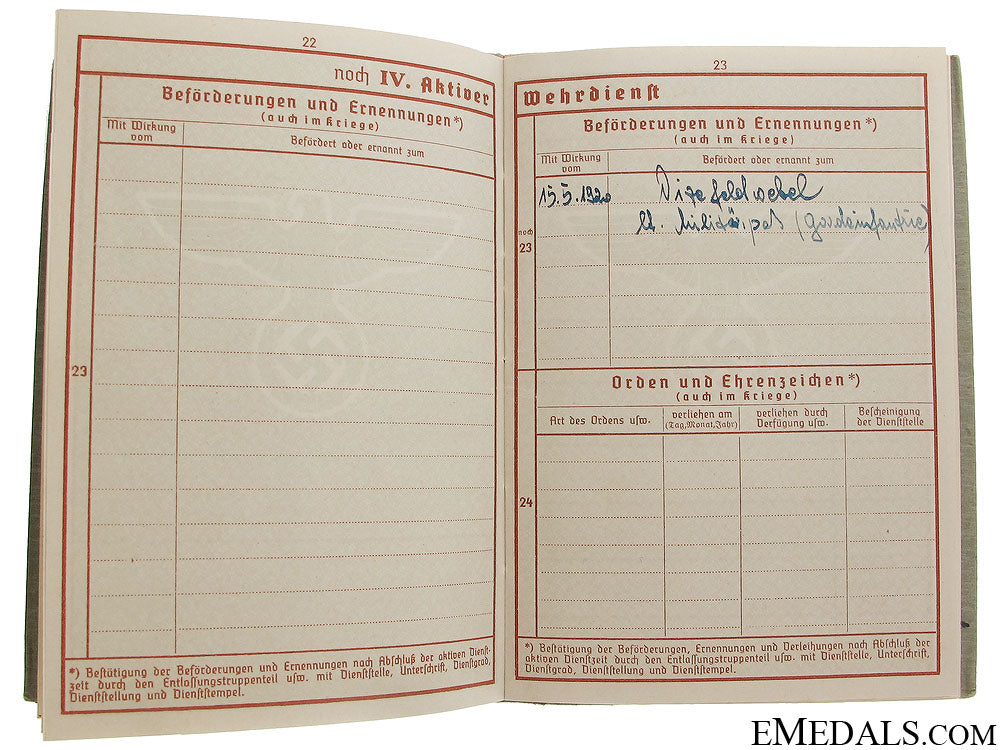 22
noch IV. Aktiver
Beförderungen und Ernennungen*)
(auch im Kriege)
Mit Wirkung
vom
Befördert oder ernannt zum
23
*) Bestätigung der Beförderungen und Ernennungen nach Abschluß der aktiven Dienst-
zeit durch den Entlassungstruppenteil usw. mit Dienststelle, Unterschrift, Dienstgrad,
Dienststellung und Dienststempel.
23
Wehrdienst
Beförderungen und Ernennungen*)
(auch im Kriege)
Mit Wirkung
vom
Befördert oder ernannt zum
15.5.1920 Vizefeldwebel
noch
23
Orden und Ehrenzeichen*)
(auch im Kriege)
Art des Ordens usw.
verliehen am
(Tag, Monat, Jahr)
verliehen durch
Verfügung usw.
Bescheinigung
der Dienststelle
24
*) Bestätigung der Beförderungen, Ernennungen und Verleihungen nach Abschluß der
aktiven Dienstzeit durch den Entlassungstruppenteil usw. mit Dienststelle, Unterschrift,
Dienstgrad, Dienststellung und Dienststempel.
EMEDALS.COM